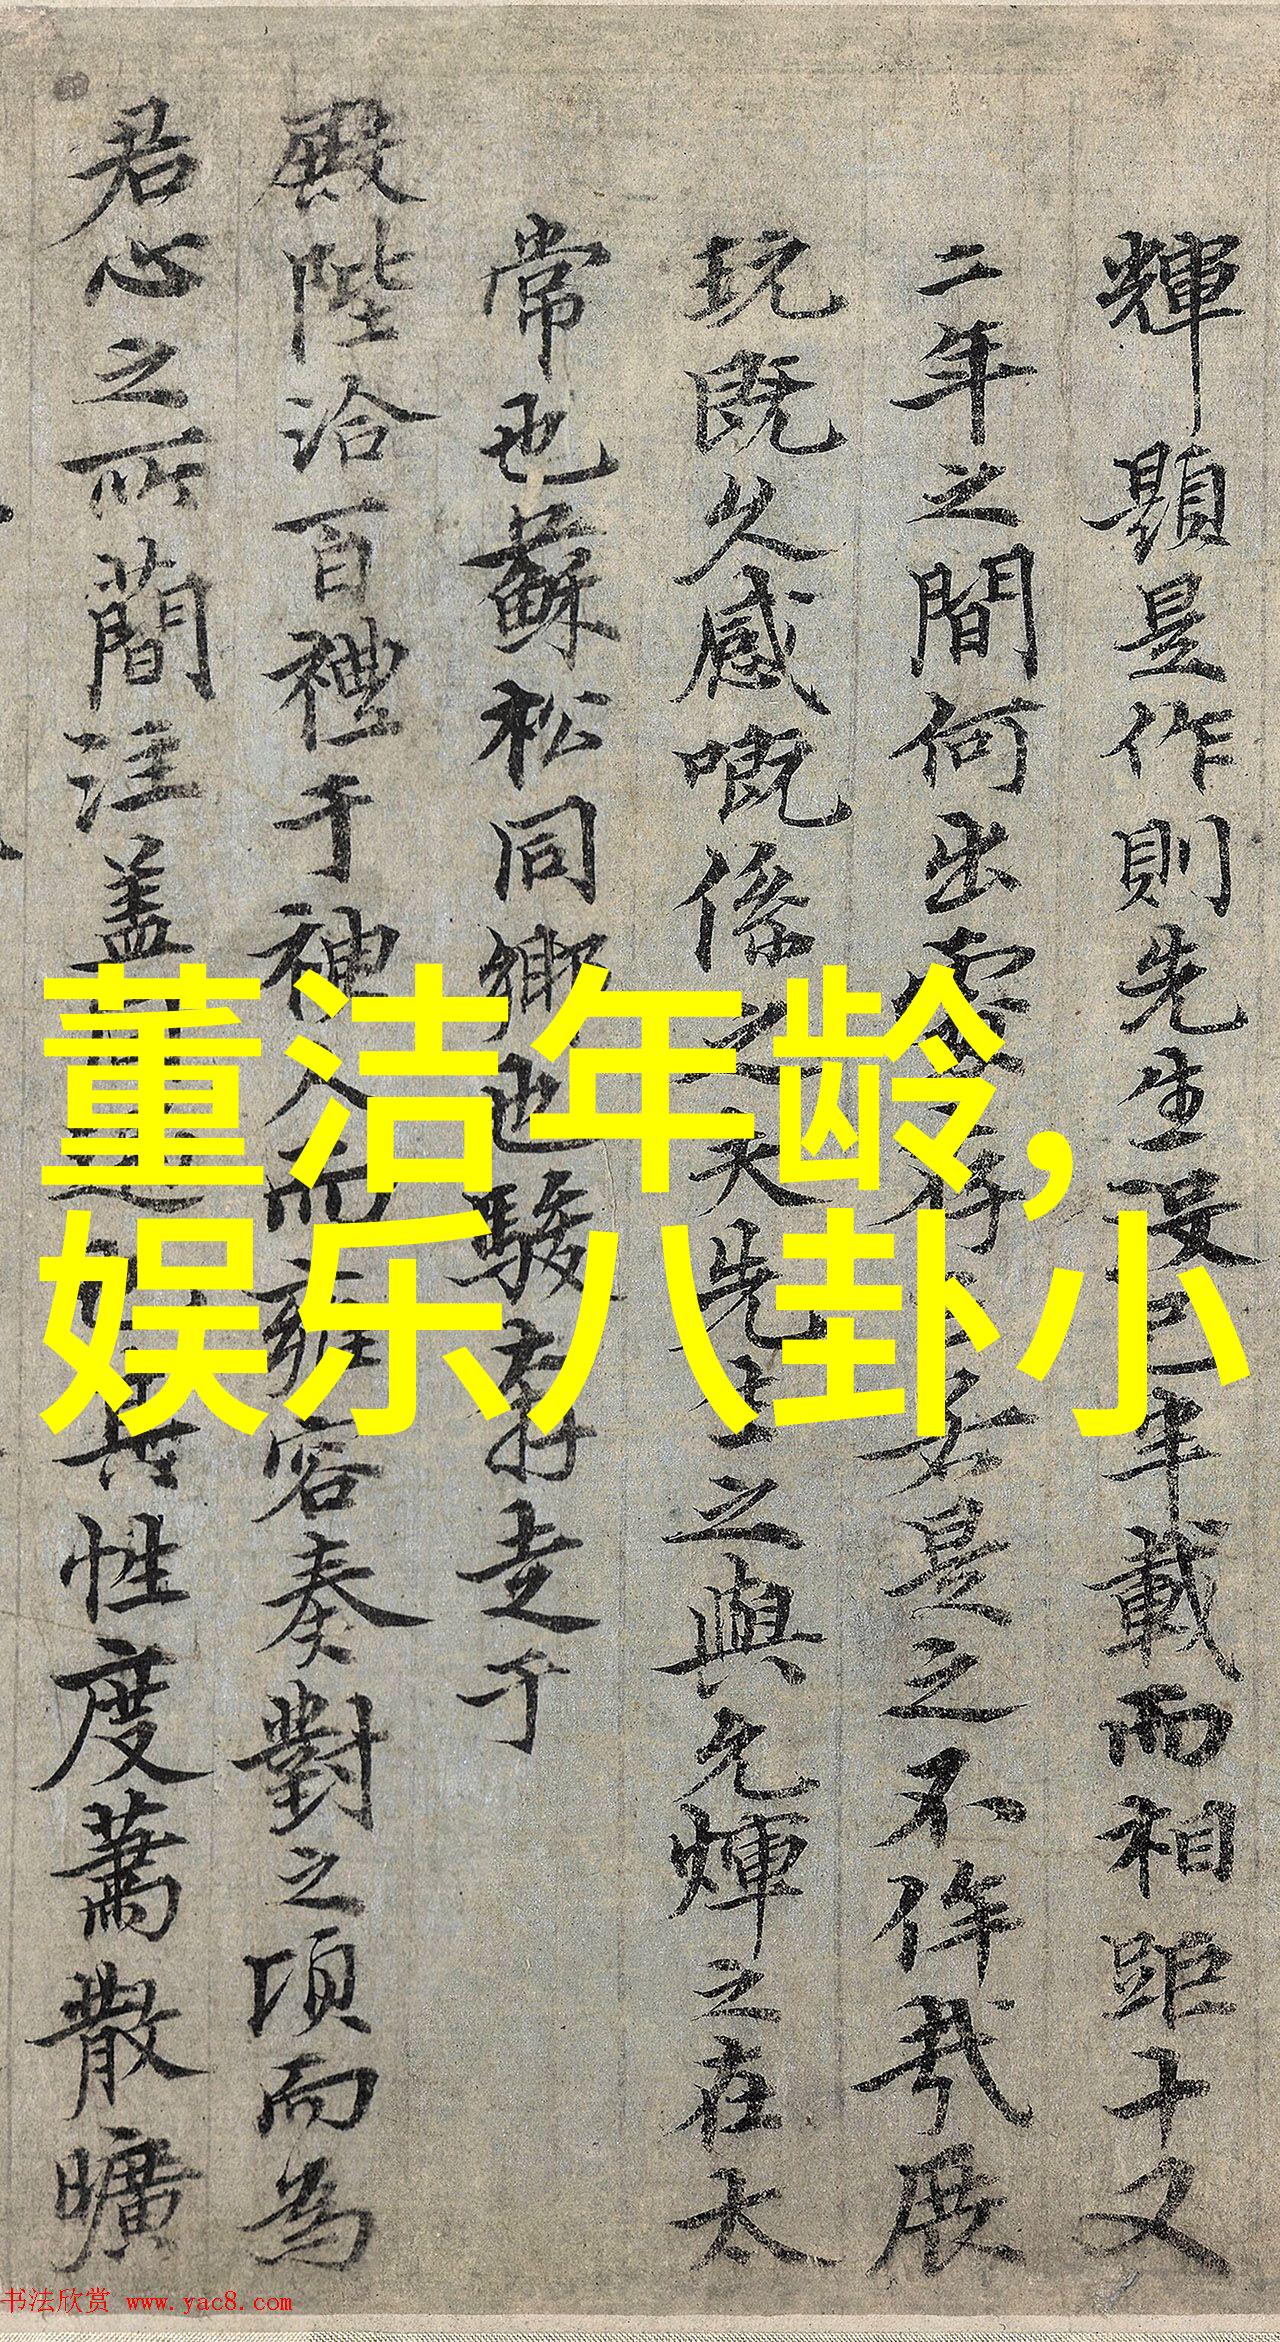 輝題是作則先生没已半載而相距十又
二年之間何出處存亡若是之不侔哉展
玩既久感嘅係之夫先生之與允輝之在太
常也蘇松同鄉也駿奔走于
殿陛洽百禮于神人而雍容奏對之頃而為
君心之所蕳注盖其性度蕭散曠
董洁年龄,
娱乐八卦小
书法欣赏 www.yac8.com